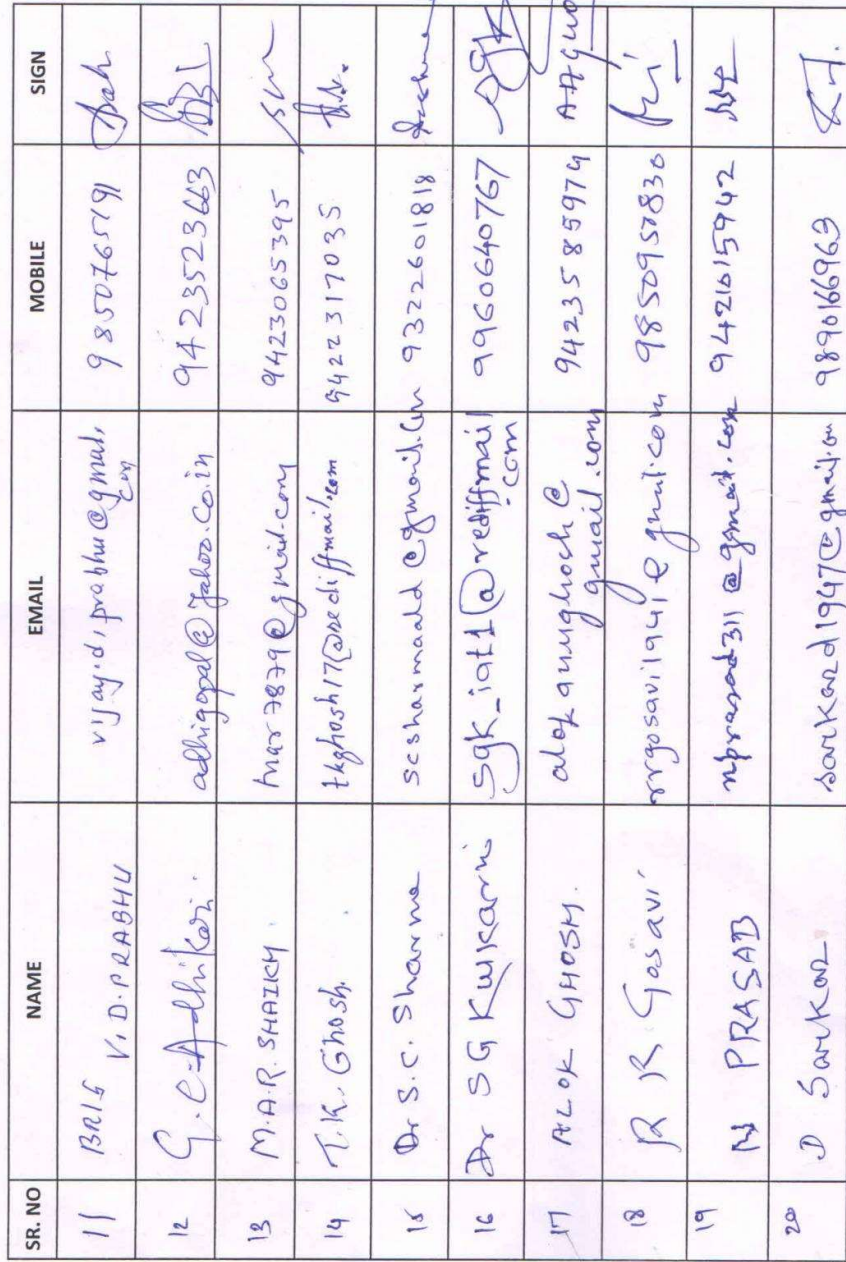 SR. NO NAME EMAIL MOBILE SIGN
11 BRIG V.D. PRABHU vijay.d.prabhu@gmail.com 9850765191
12 G.C. Adhikari adhigopal@yahoo.co.in 9423523663
13 M.A.R. SHAIKH mar7879@gmail.com 9423065395
14 T.K. Ghosh. tkghosh17@rediffmail.com 9422317035
15 Dr S.C. Sharma scsharmaald@gmail.com 9322601818
16 Dr SG Kulkarni sgk_iat1@rediffmail.com 9960640767 SGK
17 ALOK GHOSH. alokanughosh@gmail.com 9423585974
18 R R Gosavi rrgosavi1941@gmail.com 9850950830
19 N PRASAD nprasad311@gmail.com 9421015942
20 D Sarkar sarkard1947@gmail.com 9890166963